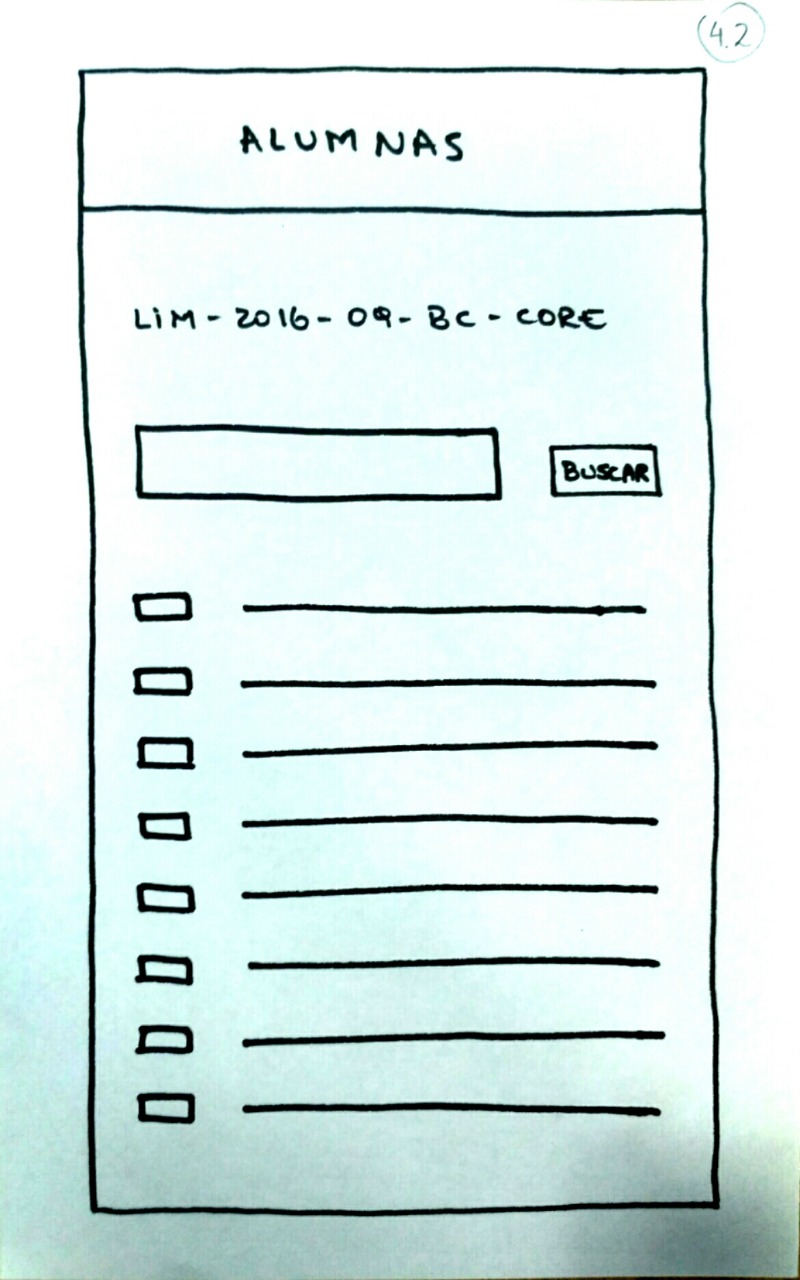 4.2
ALUMNAS
LiM - 2016 - 09 - BC - CORE
BUSCAR